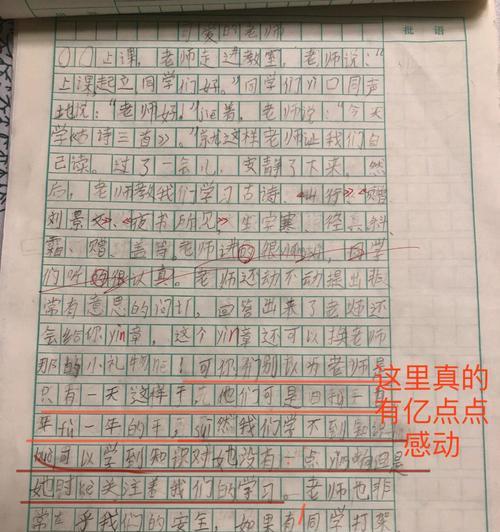 可爱的老师
批语
上课，老师走进教室，老师说："
上课起立同学们好。"同学们口同声
地说："老师好。"着，老师说："今天
学《古诗三首》。"老师让我们自
己读。过了一会儿，安静了下来。然
后，老师教我们学习古诗，《山行》《赠
刘景文》《夜书所见》生字寒、径、斜、
霜、赠、盖等。老师讲的很，同学
们听的很认真。老师还动不动提出非
常有意思的问，回答出来了老师还
会给你yin章，这个yin章还可以换老师
那的小礼物呢！可你们别以为老师是
只有一天这样干，他们可是日
一年的干，然我们学不到知识
可以学到知识对她没有一点但是
她时ke关注着我们的学习。老师也非
常在乎我们的安全，如果有同学打架
这里真的
有亿点点
感动